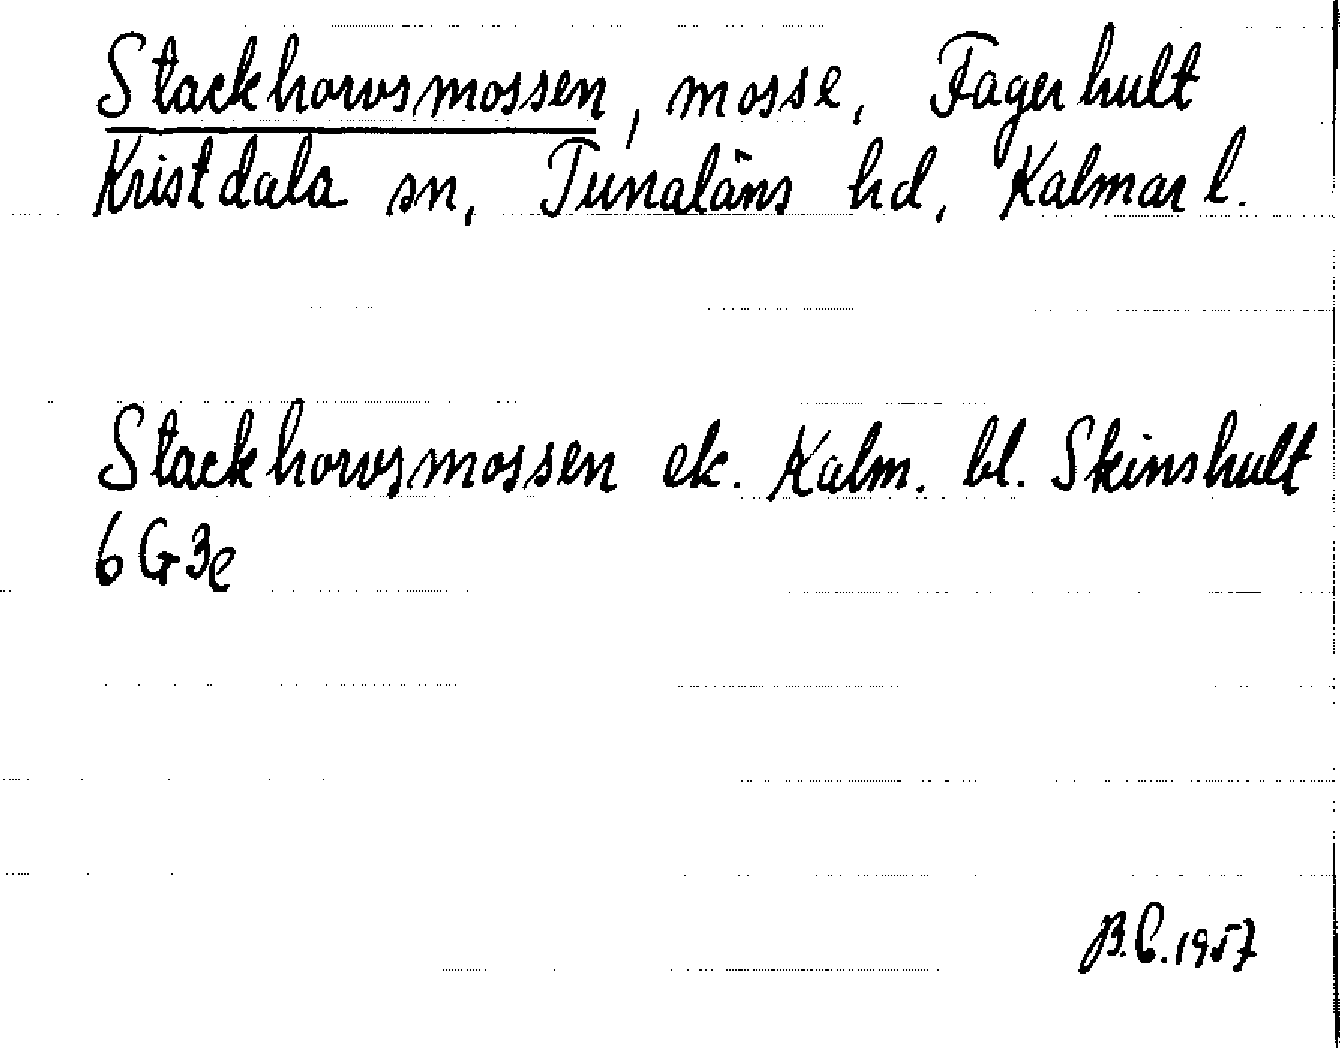 Stackhorvsmossen, mosse, Fagerhult
Kristdala sn, Tunaläns hd, Kalmar l.
Stackhorvsmossen ek. Kalm. bl. Skinshult
6G3e
B.C. 1957